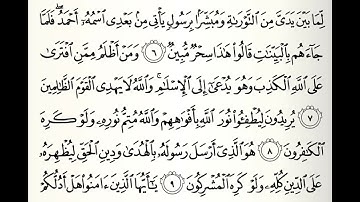 لِّمَا بَيْنَ يَدَىَّ مِنَ ٱلتَّوْرَىٰةِ وَمُبَشِّرًۢا بِرَسُولٍ يَأْتِى مِنۢ بَعْدِى ٱسْمُهُۥٓ أَحْمَدُ ۖ فَلَمَّا
جَآءَهُم بِٱلْبَيِّنَٰتِ قَالُوا۟ هَٰذَا سِحْرٌ مُّبِينٌ ٦ وَمَنْ أَظْلَمُ مِمَّنِ ٱفْتَرَىٰ
عَلَى ٱللَّهِ ٱلْكَذِبَ وَهُوَ يُدْعَىٰٓ إِلَى ٱلْإِسْلَٰمِ ۚ وَٱللَّهُ لَا يَهْدِى ٱلْقَوْمَ ٱلظَّٰلِمِينَ
٧ يُرِيدُونَ لِيُطْفِـُٔوا۟ نُورَ ٱللَّهِ بِأَفْوَٰهِهِمْ وَٱللَّهُ مُتِمُّ نُورِهِۦ وَلَوْ كَرِهَ
ٱلْكَٰفِرُونَ ٨ هُوَ ٱلَّذِىٓ أَرْسَلَ رَسُولَهُۥ بِٱلْهُدَىٰ وَدِينِ ٱلْحَقِّ لِيُظْهِرَهُۥ
عَلَى ٱلدِّينِ كُلِّهِۦ وَلَوْ كَرِهَ ٱلْمُشْرِكُونَ ٩ يَٰٓأَيُّهَا ٱلَّذِينَ ءَامَنُوا۟ هَلْ أَدُلُّكُمْ